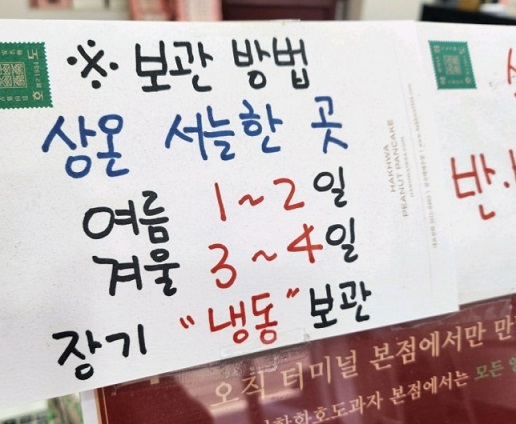 ※ 보관 방법
상온 서늘한 곳
여름 1~2일
겨울 3~4일
장기 "냉동" 보관
HAKHWA
PEANUT PANCAKE
오직 터미널 본점에서만 만
본점에서는 모든